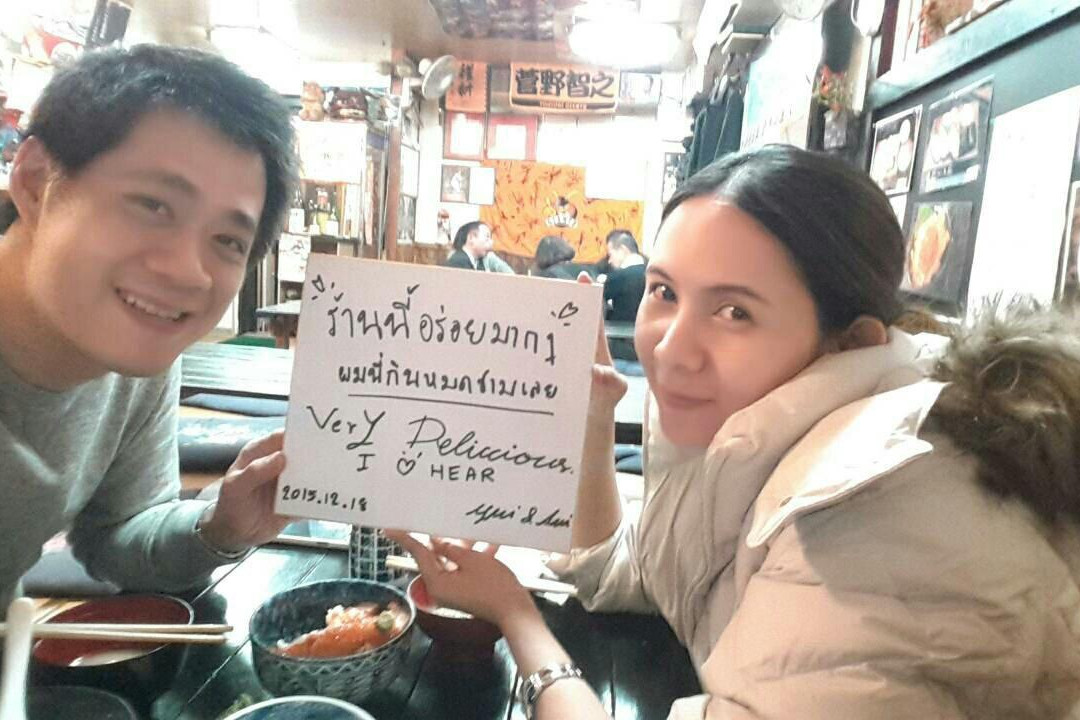 菅野智之
ร้านนี้อร่อยมากๆ
ผมนี่กินหมดชามเลย
Very Deliciour.
I ♡ HEAR
2015.12.18